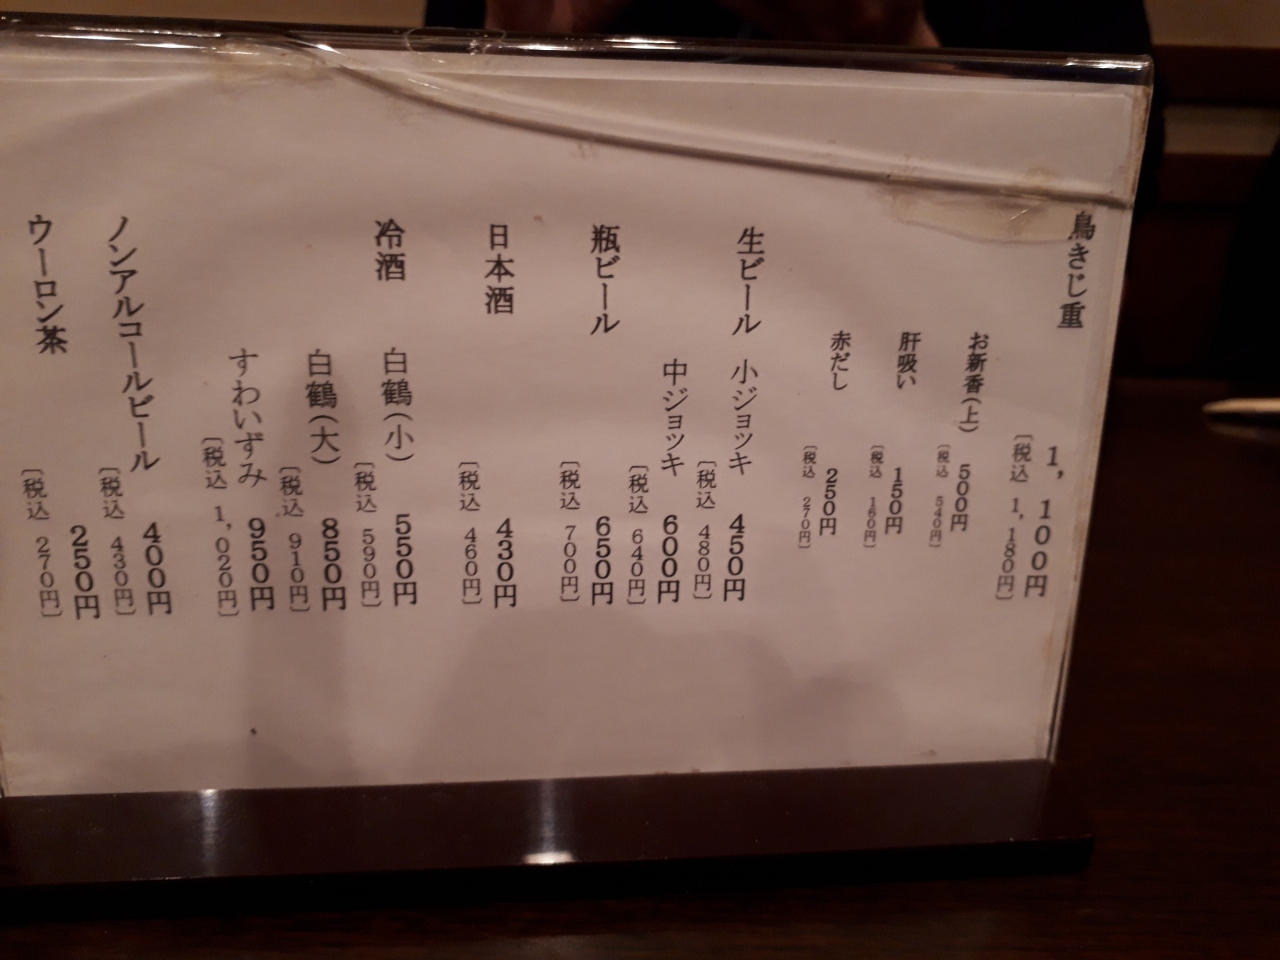 鳥きじ重 1,100円
〔税込 1,180円〕
お新香(上) 500円
〔税込 540円〕
肝吸い 150円
〔税込 160円〕
赤だし 250円
〔税込 270円〕
生ビール 小ジョッキ 450円
〔税込 480円〕
中ジョッキ 600円
〔税込 640円〕
瓶ビール 650円
〔税込 700円〕
日本酒 430円
〔税込 460円〕
冷酒 白鶴(小) 550円
〔税込 590円〕
白鶴(大) 850円
〔税込 910円〕
すわいずみ 950円
〔税込 1,020円〕
ノンアルコールビール 400円
〔税込 430円〕
ウーロン茶 250円
〔税込 270円〕